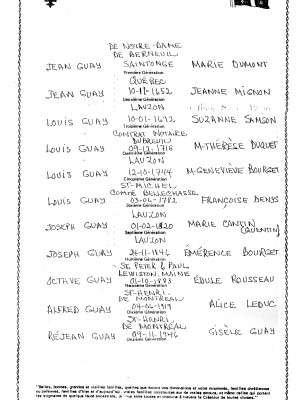 DE NOTRE-DAME
DE BERNEUIL
JEAN GUAY SAINTONGE MARIE DUMONT
Première Génération
QUÉBEC
JEAN GUAY 10-11-1652 JEANNE MIGNON
Deuxième Génération
LAUZON
LOUIS GUAY 10-01-1692 SUZANNE SAMSON
Troisième Génération
CONTRAT NOTAIRE
DUBREUIL
LOUIS GUAY 09-12-1718 M-THÉRÈSE DUQUET
Quatrième Génération
LAUZON
LOUIS GUAY 12-10-1744 M-GENEVIÈVE BOURGET
Cinquième Génération
ST-MICHEL
COMTÉ BELLECHASSE
LOUIS GUAY 03-06-1782 FRANÇOISE DENYS
Sixième Génération
LAUZON
JOSEPH GUAY 01-02-1820 MARIE CANTIN
(QUENTIN)
Septième Génération
LAUZON
JOSEPH GUAY 24-11-1846 ÉMÉRENCE BOURGET
Huitième Génération
SE PETER & PAUL
LEWISTON MAINE
OCTAVE GUAY ÉDULE ROUSSEAU
Neuvième Génération
ST-HENRI
DE MONTRÉAL
ALFRED GUAY 04-06-1919 ALICE LEDUC
Dixième Génération
ST-HENRI
DE MONTRÉAL
RÉJEAN GUAY 09-11-1946 GISÈLE GUAY
"Belles, bonnes, grandes et vieilles familles, quelles que soient vos dimensions et votre renommée, familles chrétiennes